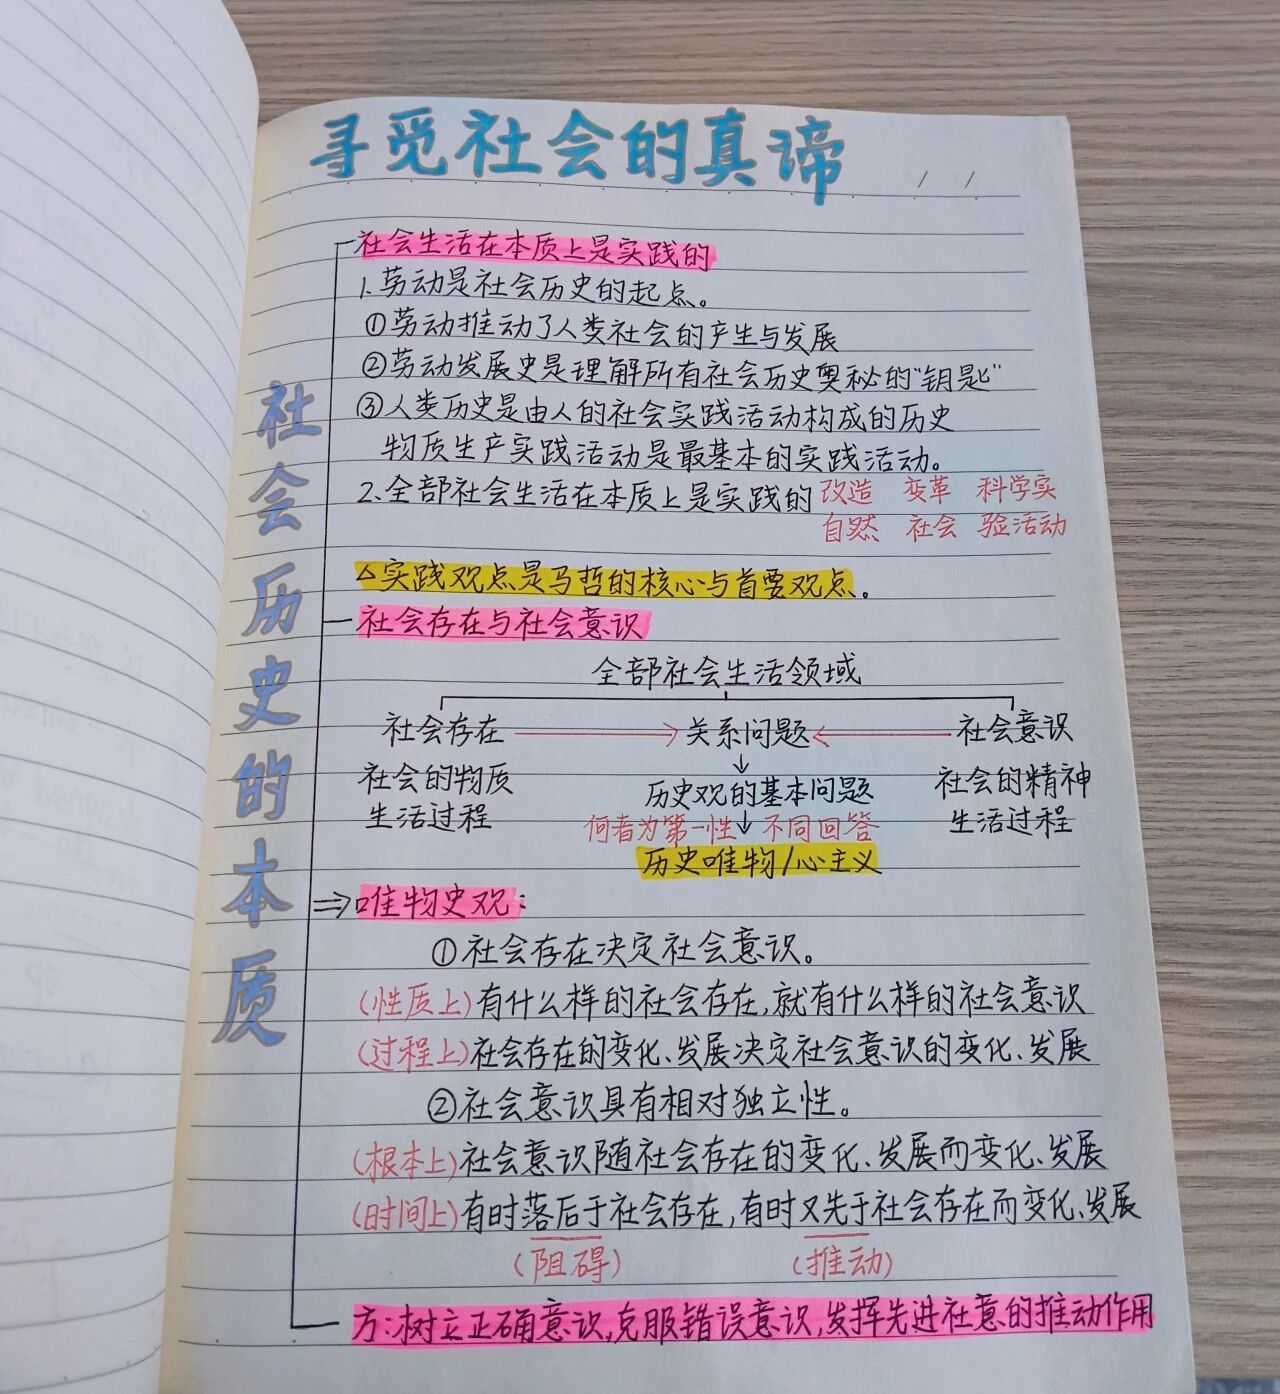 寻觅社会的真谛
/ /
社会历史的本质
社会生活在本质上是实践的
1.劳动是社会历史的起点。
①劳动推动了人类社会的产生与发展
②劳动发展史是理解所有社会历史奥秘的"钥匙"
③人类历史是由人的社会实践活动构成的历史
物质生产实践活动是最基本的实践活动。
2.全部社会生活在本质上是实践的 改造 变革 科学实
自然 社会 验活动
△实践观点是马哲的核心与首要观点、。
社会存在与社会意识
全部社会生活领域
社会存在 → 关系问题 ← 社会意识
↓
社会的物质 历史观的基本问题 社会的精神
生活过程 何者为第一性 ↓ 不同回答 生活过程
历史唯物/心主义
⇒唯物史观:
①社会存在决定社会意识。
(性质上)有什么样的社会存在,就有什么样的社会意识
(过程上)社会存在的变化、发展决定社会意识的变化、发展
②社会意识具有相对独立性。
(根本上)社会意识随社会存在的变化、发展而变化、发展
(时间上)有时落后于社会存在,有时又先于社会存在而变化、发展
(阻碍) (推动)
方:树立正确意识,克服错误意识,发挥先进社意的推动作用